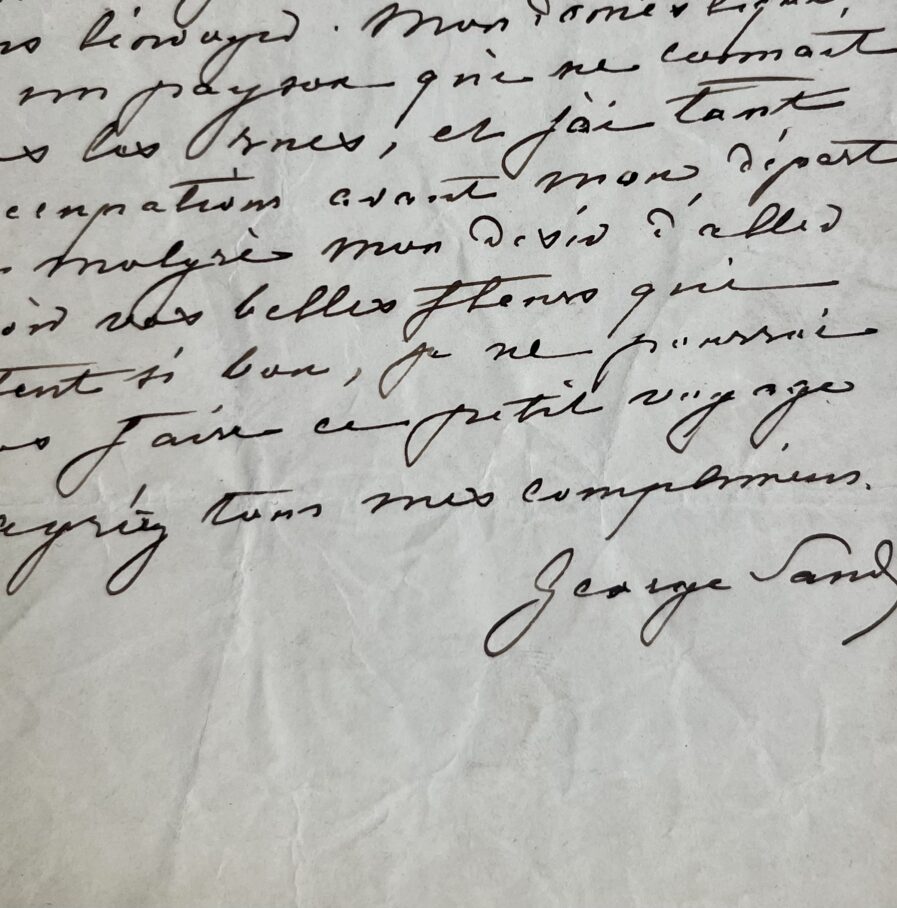 Mon domestique,
un paysan qui ne connait
les rues, et j'ai tant
avant mon départ
malgré mon désir d'aller
vos belles fleurs qui
si bon, je ne pourrai
faire ce petit voyage
agréez tous mes complimens.
George Sand